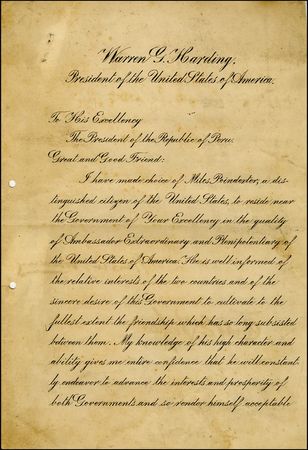 Warren G. Harding,
President of the United States of America.
To His Excellency
The President of the Republic of Peru.
Great and Good Friend:
I have made choice of Miles Poindexter, a dis-
tinguished citizen of the United States, to reside near
the Government of Your Excellency in the quality
of Ambassador Extraordinary and Plenipotentiary of
the United States of America. He is well informed of
the relative interests of the two countries and of the
sincere desire of this Government to cultivate to the
fullest extent the friendship which has so long subsisted
between them. My knowledge of his high character and
ability gives me entire confidence that he will constant-
ly endeavor to advance the interests and prosperity of
both Governments and so render himself acceptable